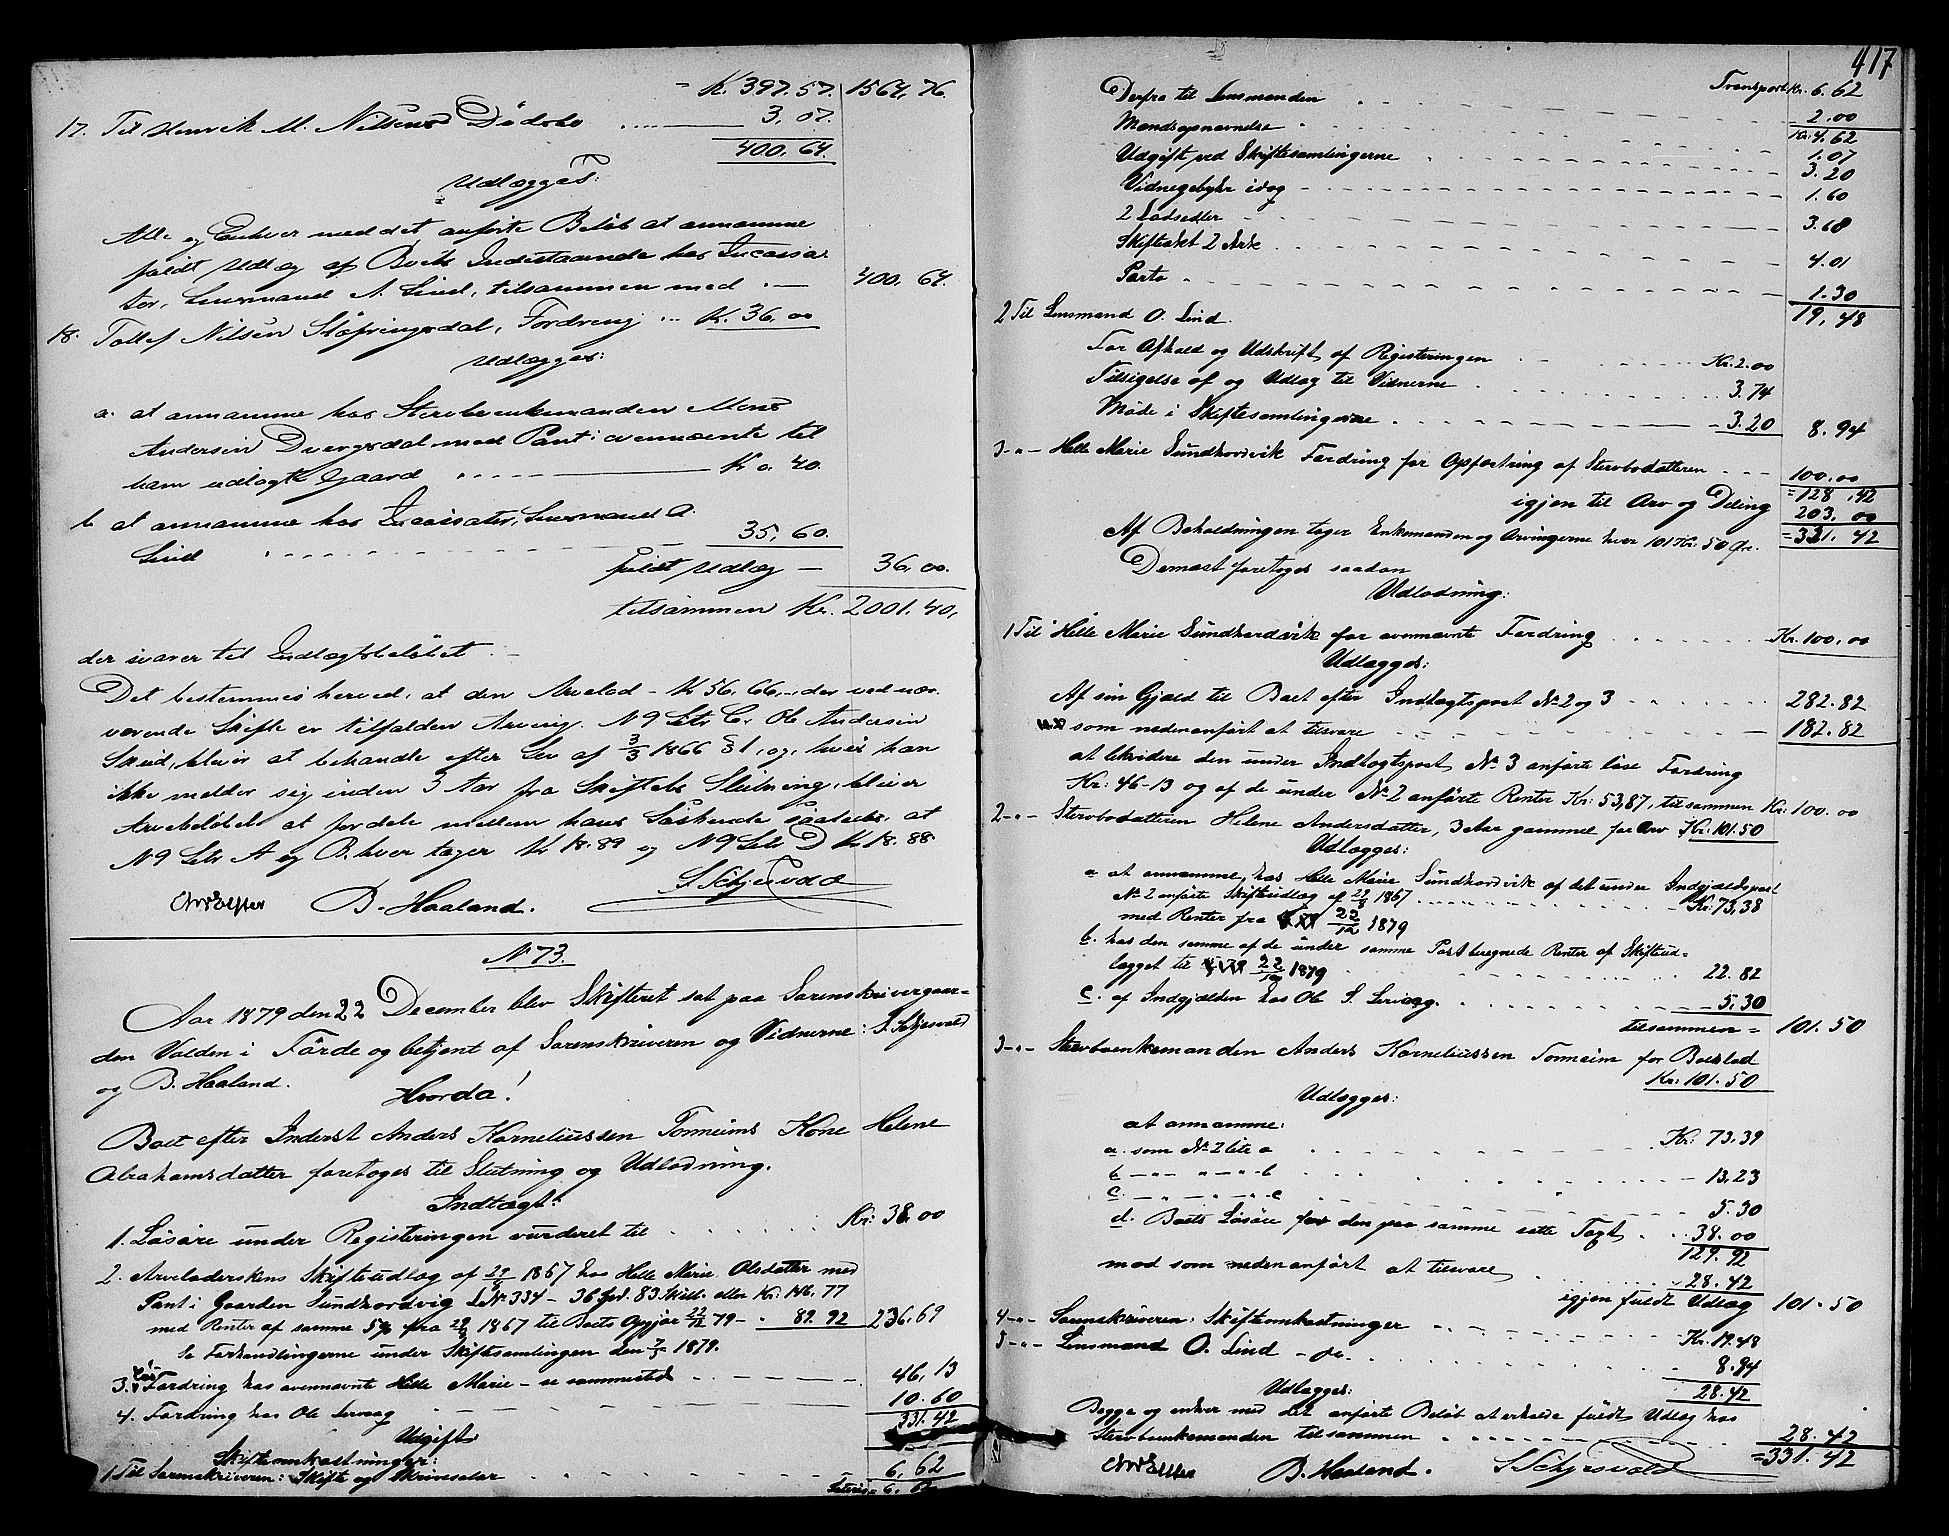 = K. 397.57. 1564,76.
17. Til Henrik M. Nilsens Dødsbo 3,07.
400.64.
Udlægges:
Alle og Enhver med det anførte Beløb at annamme
fuldt Udlæg af Boets Indestaaende hos Incassa-
tor, Lensmand A. Lind, tilsammen med 400.64.
18. Tollef Nilsen Støfringsdal, Fordring K. 36,00
Udlægges:
a. at annamme hos Sterboenkemanden Mons
Andersen Dvergsdal med Pant i ovennævnte til
ham udlagte Gaard K 0.40.
b at annamme hos Incassator, Lensmand A.
Lind 35,60.
fuldt Udlæg — 36,00.
tilsammen Kr. 2001.40,
der svarer til Indtægtsbeløbet.
Det bestemmes herved, at den Arvelod - K 56,66,-, der ved nær-
værende Skifte er tilfalden Arving N 9 Litr C. Ole Andersen
Skeid, bliver at behandle efter Lov af 3/3 1866 § 1, og, hvis han
ikke melder sig inden 3 Aar fra Skiftets Slutning, bliver
Arvebeløbet at fordele mellem hans Søskende saaledes, at
N 9 Litr A og B. hver tager K 18.89 og N 9 Litr D K 18.88
S Schjesvold
Chr Elster B. Haaland.
N 73.
Aar 1879 den 22 December blev Skifteret sat paa Sorenskrivergaar-
den Valden i Førde og betjent af Sorenskriveren og Vidnerne: S. Schjesvold
og B. Haaland.
Hvorda!
Boet efter Inderst Anders Korneliussen Tonneims Kone Helene
Abrahamsdatter foretoges til Slutning og Udlodning.
Indtægt:
1. Løsøre under Registeringen vurderet til Kr: 38.00
2. Arveladerskens Skifteudlæg af 29/8 1867 hos Helle Marie Olsdatter med
Pant i Gaarden Sundhordvig LN 334 - 36 Spd. 83 Skill. eller Kr: 146.77
med Renter af samme 5% fra 29/8 1867 til Boets Opgjør 22/12 79 - 89.92 236.69
Se Forhandlingerne under Skiftesamlingen den 7/5 1879.
3. løs Fordring hos ovennævnte Helle Marie - se sammesteds 46,13
4. Fordring hos Ole Servaag 10.60
331.42
Udgift
Skifteomkostninger:
1 Til Sorenskriveren: Skifte og Skrivesalær 6,62
Lateris = 6,62
417
Transport Kr. 6.62
Derfra til Lensmanden 2.00
Kr: 4.62
Mandsopnævnelse 1.07
Udgift ved Skiftesamlingerne 3.20
Vidnegebyhr idag 1.60
2 Lodsedler 3.68
Skifteakt 2 Ark 4.01
Porto 1.30
19,48
2 Til Lensmand O. Lind.
For Afhold og Udskrift af Registeringen Kr. 2.00
Tilsigelse af og Udlæg til Vidnerne 3.74
Møde i Skiftesamlingerne 3.20 8.94
3 -"- Helle Marie Sundhordvik Fordring for Opfostring af Sterbodatteren 100.00
= 128.42
igjen til Arv og Deling 203.00
= 331.42
Af Beholdningen tager Enkemanden og Arvingerne hver 101 Kr. 50 Øre.
Dernæst foretoges saadan
Udlodning:
1 Til Helle Marie Sundhordvik for ovennævnte Fordring Kr. 100.00
Udlægges:
Af sin Gjæld til Boet efter Indtægtspost No 2 og 3 282.82
som nedenanført at tilsvare 182.82
at likvidere den under Indtægtspost No 3 anførte løse Fordring
Kr: 46-13 og af de under No 2 anførte Renter Kr: 53,87, tilsammen Kr: 100.00
2 -"- Sterbodatteren Helene Andersdatter, 3 Aar gammel for Arv Kr: 101.50
Udlægges:
a at annamme hos Helle Marie Sundhordvik af det under Indgjældspost
No 2 anførte Skifteudlæg af 29/8 1867 Kr: 73,38
med Renter fra 22/12 1879
b. hos den samme af de under samme Post beregnede Renter af Skifteud-
lægget til 22/12 1879 22.82
c. af Indgjælden hos Ole S. Servaag. 5,30
tilsammen = 101.50
3 -"- Sterboenkemanden Anders Korneliussen Tonneim for Boeslod
Kr: 101.50
Udlægges:
at annamme:
a. som No 2 litr a Kr: 73.39
b -"- " -"- b 13,23
c. -"- " -"- c 5.30
d. Boets Løsøre for den paa samme satte Taxt 38.00
129.92
mod som nedenanført at tilsvare 28.42
igjen fuldt Udlæg 101.50
4 -"- Sorenskriveren: Skifteomkostninger Kr. 19.48
5 -"- Lensmand O. Lind - do. 8.94
28.42
Udlægges:
Begge og enhver med det anførte Beløb at erholde fuldt Udlæg hos
Sterboenkemanden tilsammen 28.42
= 331.42
Chr Elster B. Haaland. S Schjesvold